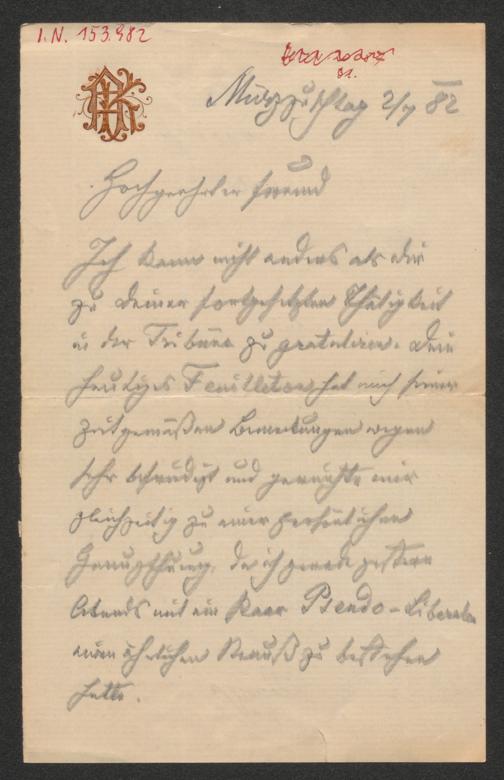 I.N. 153.982
Mürzzuschlag 2/7 82
Hochgeehrter Freund
Ich kann nicht anders als dir
zu deiner fortgesetzten Thätigkeit
in der Tribüne zu gratuliren. Dein
heutiges Feuilleton hat mich seiner
zeitgemäßen Bemerkungen wegen
sehr befriedigt und gereichte mir
gleichzeitig zu einer persönlichen
Genugthuung, da ich gerade gestern
Abends mit ein Paar Pseudo-Liberalen
einen ähnlichen Strauß zu bestehen
hatte.